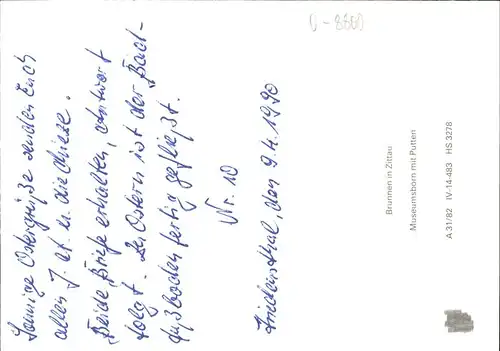 Sonnige Ostergrüße senden Euch
allen J. u. die
Beide Briefe erhalten, Antwort
folgt. Zu Ostern ist der Bad-
fußboden fertig gefließt.
Nr. 10
Friedersthal, den 9.4.1990
Brunnen in Zittau
Museumsborn mit Putten
A 31/82 IV-14-483 HS 3278
0-8800